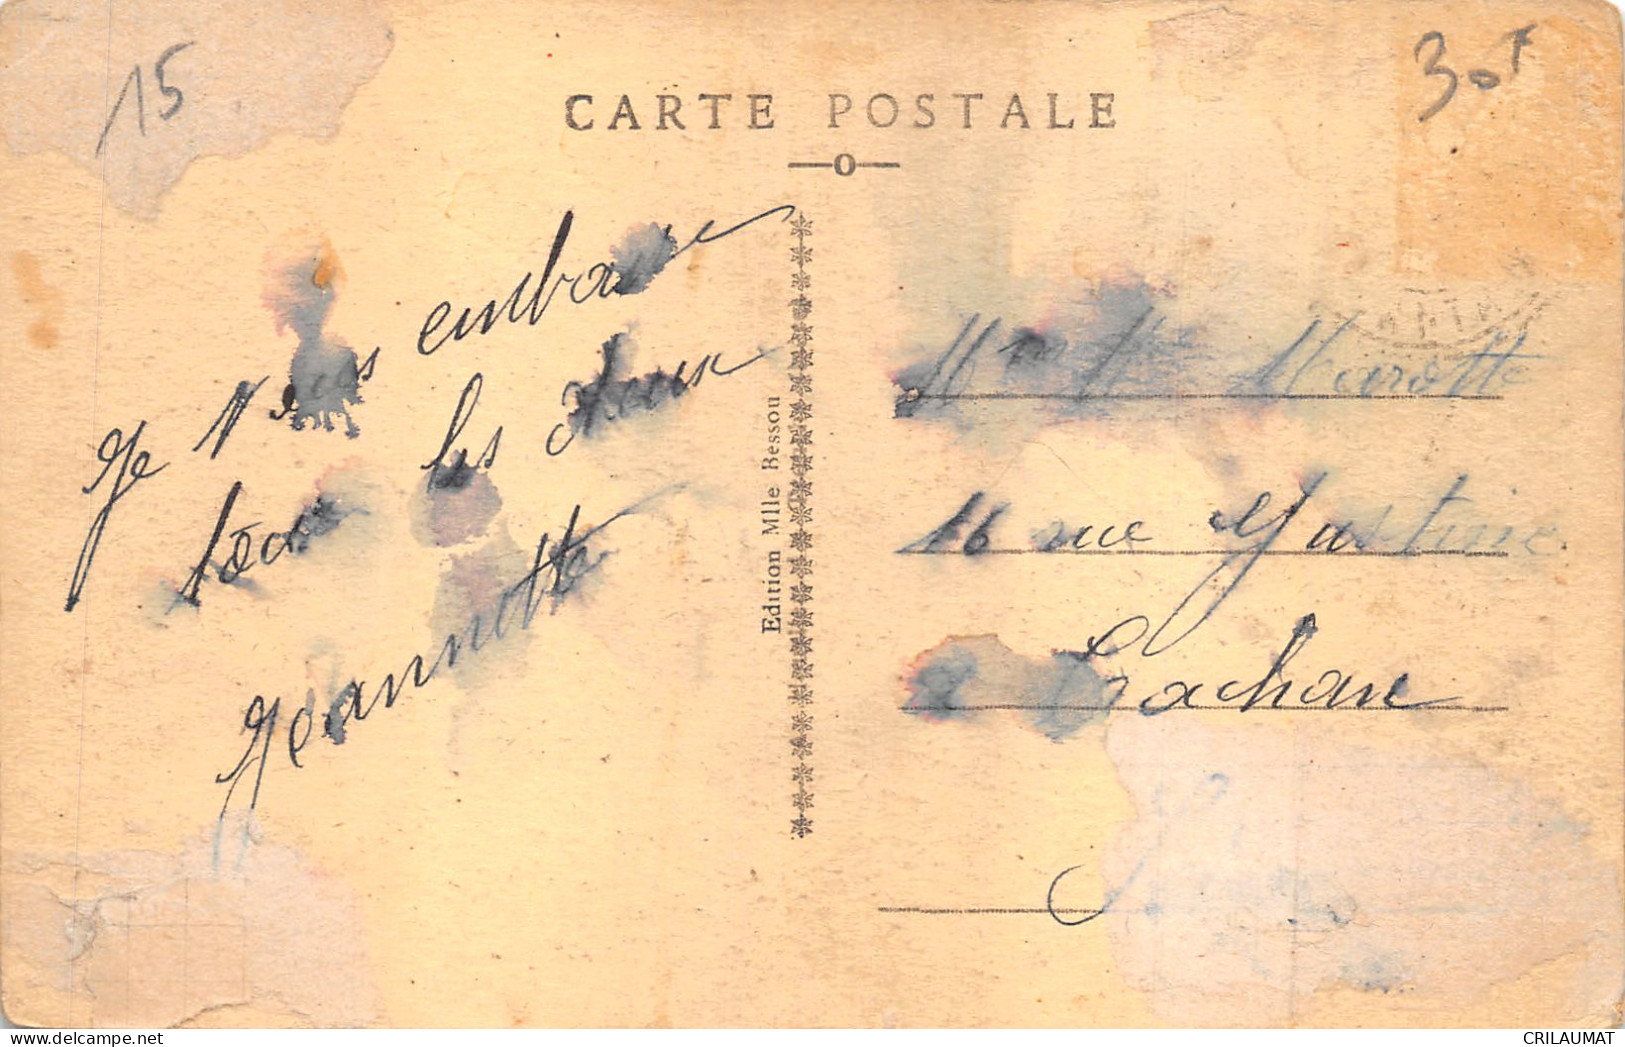 15
30F
CARTE POSTALE
Je Vous embrasse
tous les deux
Jeannette
Edition Mlle Bessou
Mr Mme Marotte
16 rue Justine
à Cachan
CRILAUMAT